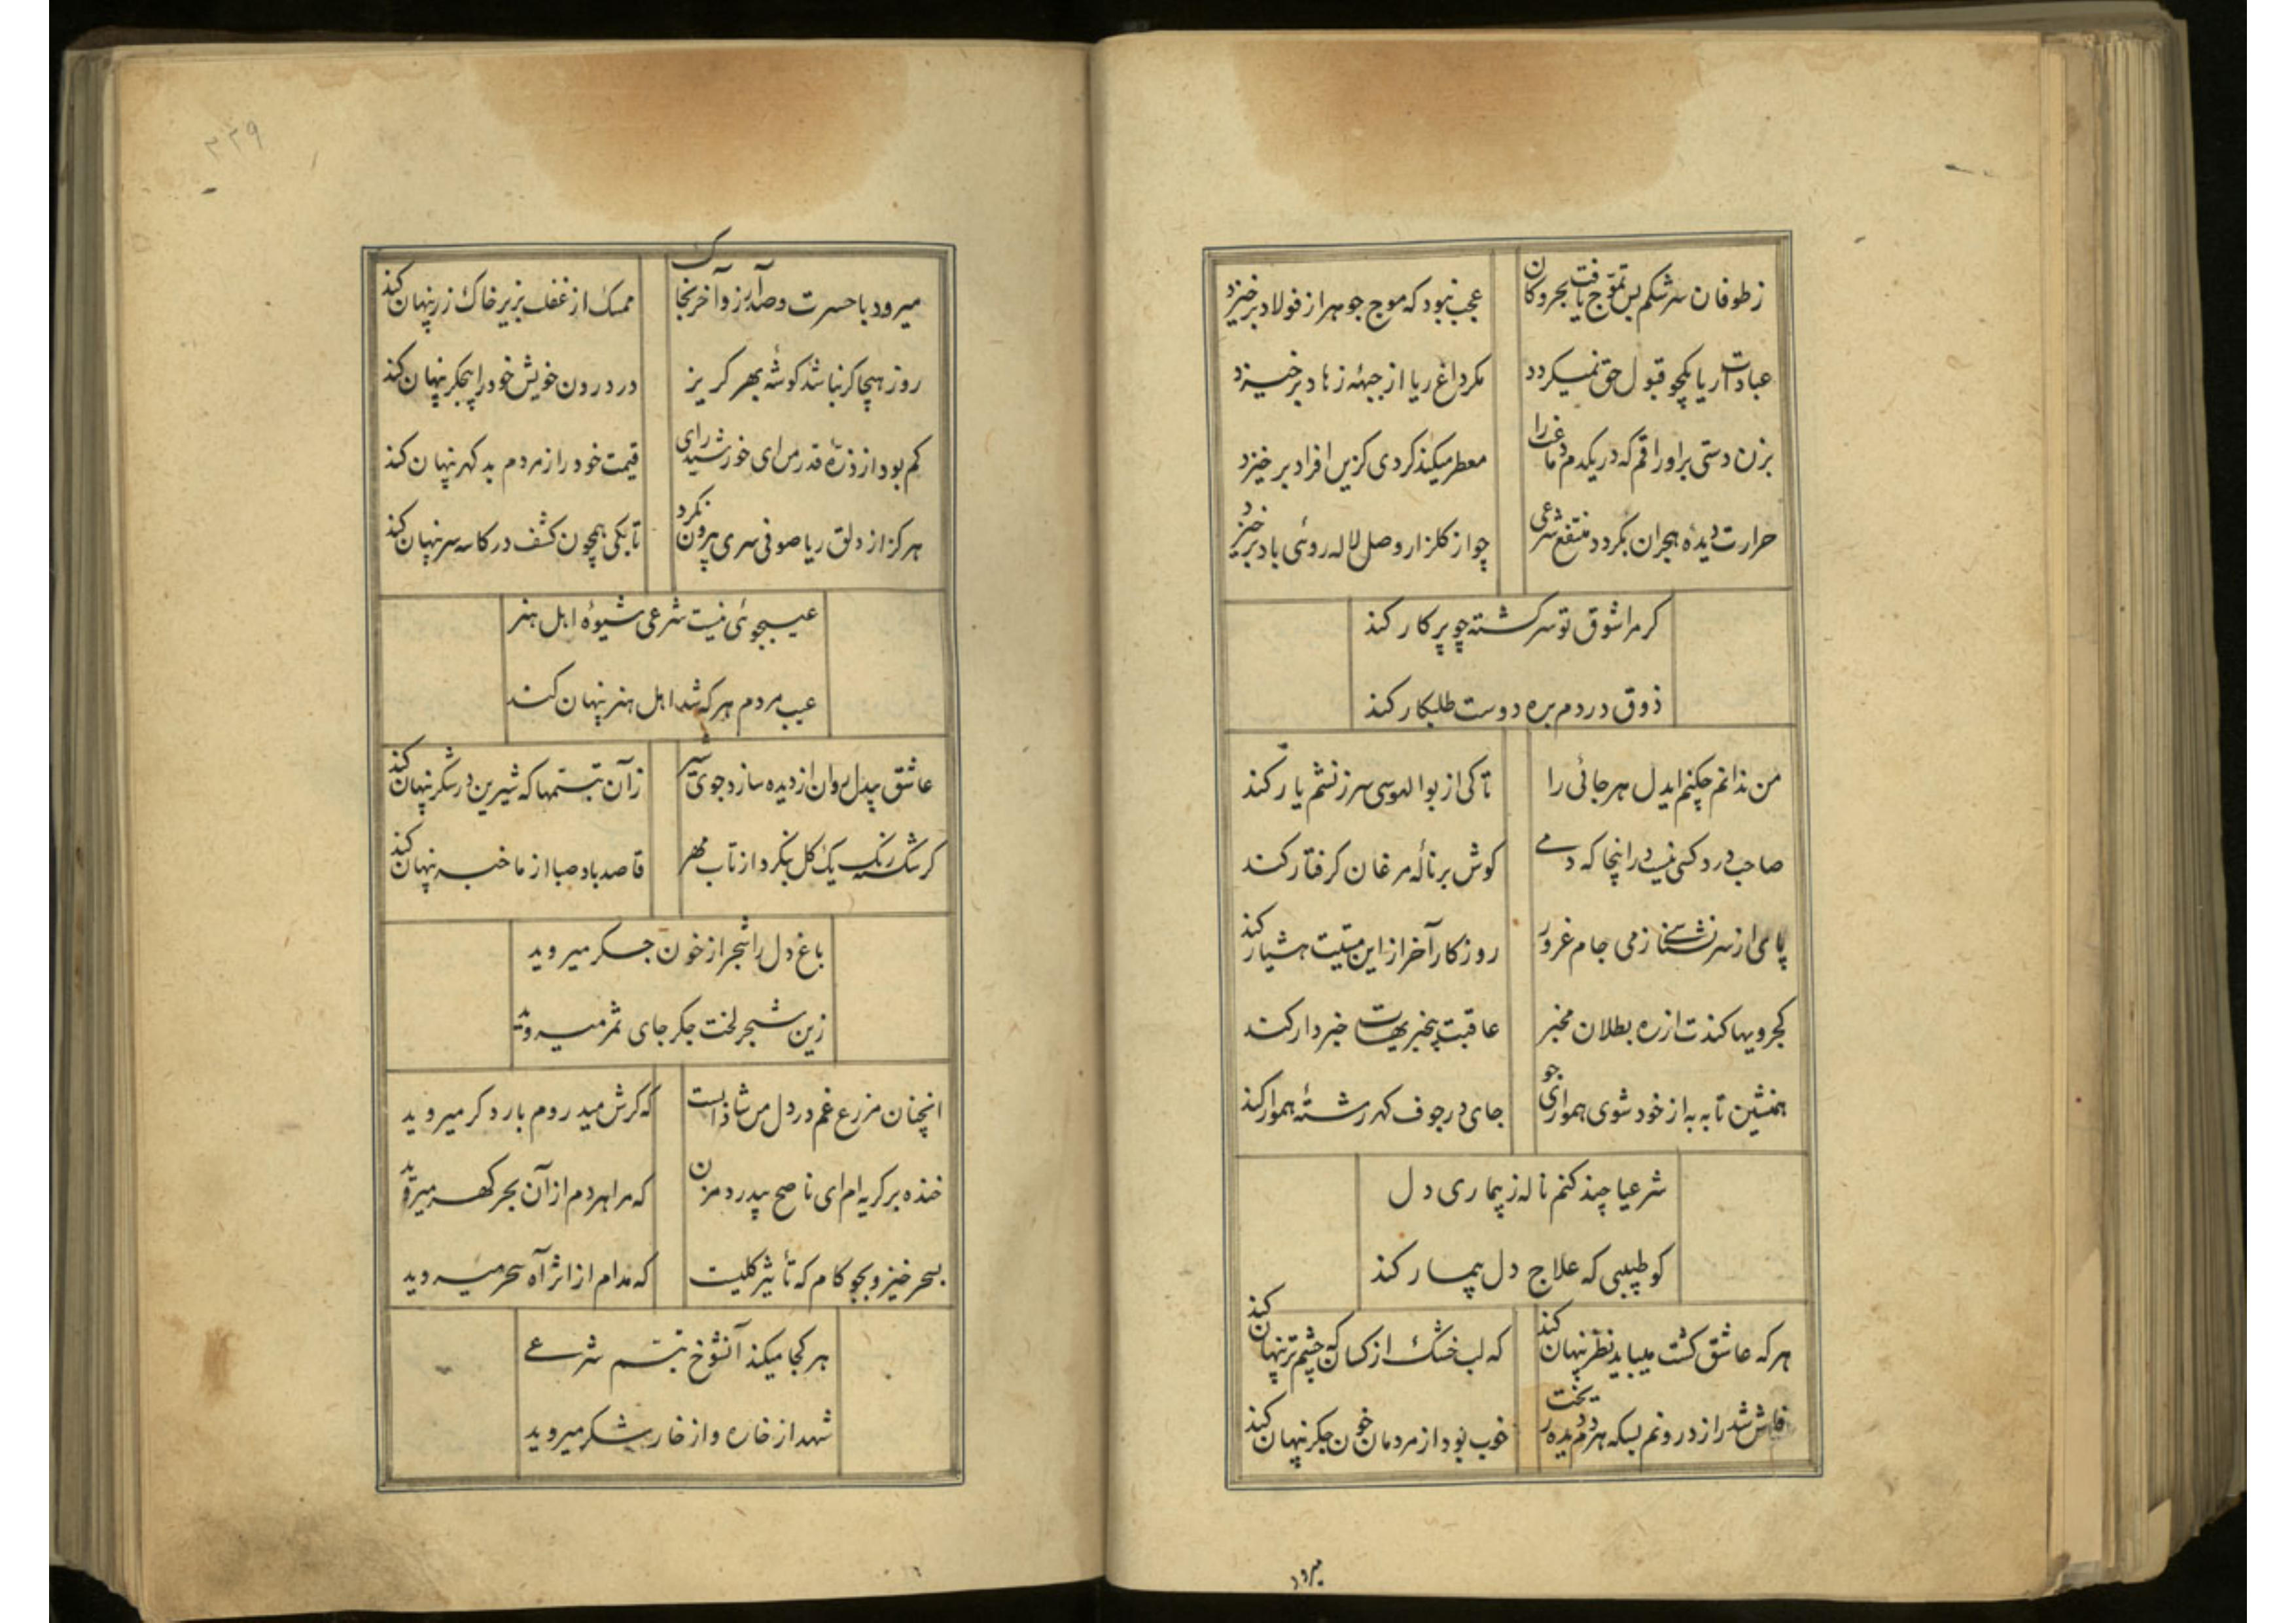 ز طوفان سرشکم بس تموّج یافت بحر و کان عجب نبود که موج جوهر از فولاد برخیزد
عبادات ریا یکجو قبول حق نمیکردد مکر داغ ریا از جبههٔ زهاد برخیزد
بزن دستی بر اوراقم که در یکدم دماغت را معطر میکند کردی کزین افراد برخیزد
حرارت دیدهٔ هجران نکردد منتفع شرعی چو از کلزار وصل لاله روئی باد برخیزد
کر مرا شوق تو سرکشته چو پرکار کند
ذوق دردم بره دوست طلبکار کند
من ندانم چکنم ایدل هرجائی را تا کی از بوالهوسی سرزنشم یار کند
صاحب درد کسی نیست در اینجا که دمی کوش بر نالهٔ مرغان کرفتار کند
پای از سر نشناسی ز می جام غرور روزکار آخر از این مستیت هشیار کند
کجرویها کندت از ره بطلان مخبر عاقبت بیخبریهات خبردار کند
همنشین تا به به از خود شوی همواری جو جای در جوف کهر رشتهٔ هموار کند
شرعیا چند کنم ناله ز بیماری دل
کو طبیبی که علاج دل بیمار کند
هر که عاشق کشت میباید نظر پنهان کند که لب خشک از کسان که چشم تر پنهان کند
فاش شد راز درونم بسکه هردم دیده ریخت خوب بود از مردمان خون جکر پنهان کند
میرود
۲۲۹
میرود با حسرت و صد آرزو آخر بخاک ممسک از غفلت بزیر خاک زر پنهان کند
روز هیجا کر نباشد کوشهٔ بهر کریز در درون خویش خود را بیجکر پنهان کند
کم بود از ذرهٔ قدر من ای خورشید رای قیمت خود را ز مردم بد کهر پنهان کند
هرکز از دلق ریا صوفی سری بیرون نکرد تا بکی همچون کشف در کاسه سر پنهان کند
عیبجوئی نیست شرعی شیوهٔ اهل هنر
عیب مردم هر که شد اهل هنر پنهان کند
عاشق بیدل روان از دیده سازد جوی شیر زآن تبسمها که شیرین در شکر پنهان کند
کر شکسته رنک یک کل بنکرد از تاب مهر قاصد باد صبا از ما خبر پنهان کند
باغ دل را شجر از خون جکر میروید
زین شجر لخت جکر جای ثمر میروید
انچنان مزرع غم در دل من شادابست که کرش میدروم بار دکر میروید
خنده بر کریه‌ام ای ناصح بیدرد مزن که مرا هردم از آن بحر کهر میروید
بسحر خیز و بجو کام که تأثیر کلیست که مدام از اثر آه سحر میروید
هر کجا میکند آنشوخ تبسم شرعی
شهد از خاره و از خار شکر میروید